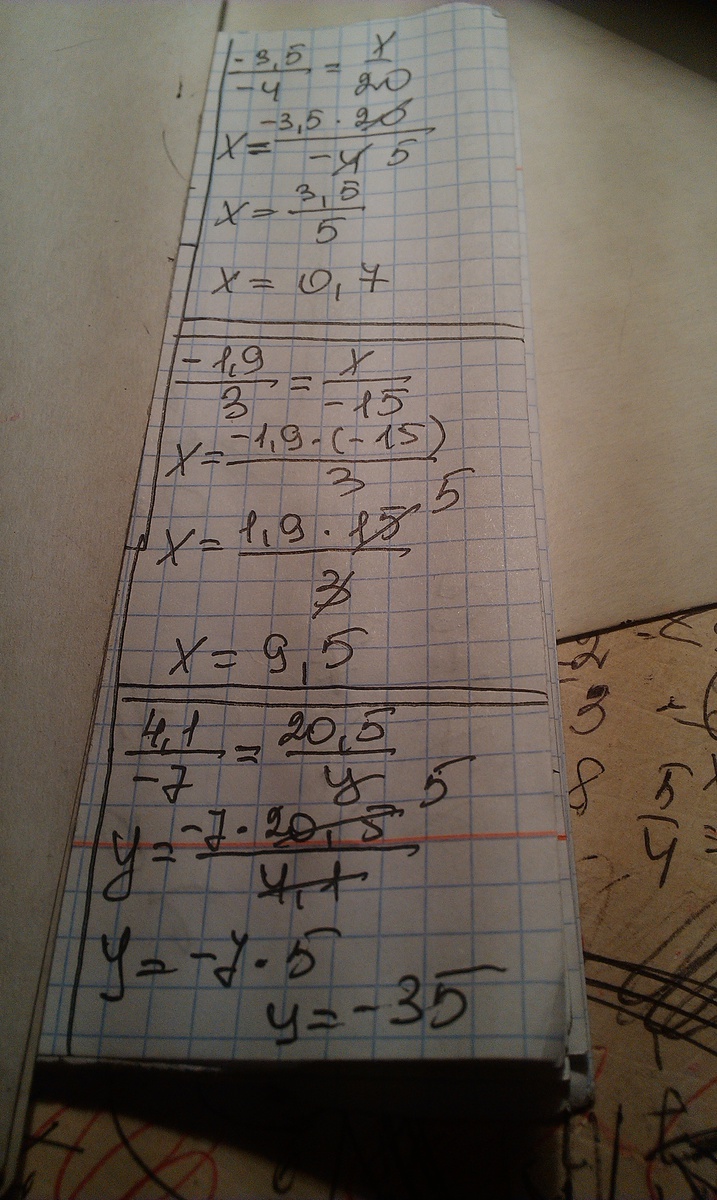 -3,5/-4 = x/20
x = -3,5 · 20/-4 5
x = 3,5/5
x = 0,7
-1,9/3 = x/-15
x = -1,9 · (-15)/3
x = 1,9 · 15/3 5
x = 9,5
4,1/-7 = 20,5/y
y = -7 · 20,5/4,1 5
y = -7 · 5
y = -35
2
3
8 5
4